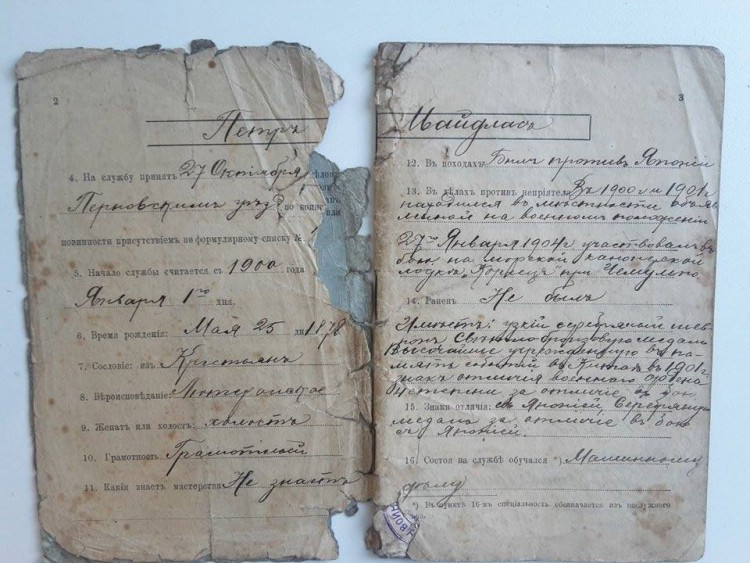 2
Петръ
4. На службу принятъ 27 Октября
Перновскимъ уѣзд по воинс
повинности присутствіемъ по формулярному списку №
5. Начало службы считается съ 1900 года
Января 1го дня.
6. Время рожденія: Мая 25 дн 1878
7. Сословіе: изъ Крестьянъ
8. Вѣроисповѣданіе: Лютеранское
9. Женатъ или холостъ: холостъ
10. Грамотность Грамотный
11. Какія знаетъ мастерства: Не знаетъ
3
Майдласъ
12. Въ походахъ: Былъ противъ Японіи
13. Въ дѣлахъ противъ непріятеля: Въ 1900 и 1901г
находился въ мѣстности объяв
ленной на военномъ положеніи
27го Января 1904г участвовалъ въ
бою на морской канонерской
лодкѣ "Кореецъ" при Чемульпо
14. Раненъ Не былъ
Имѣетъ: узкій серебряный шев
ронъ Свѣтло бронзовую медаль
Высочайше учрежденную въ па-
мять событій въ Китаѣ въ 1901г
знакъ отличія военнаго ордена
4 степени за отличіе въ бою
15. Знаки отличія: съ Японіей Серебряную
медаль за отличіе въ бою
съ Японіей.
16. Состоя на службѣ обучался *) Машинному
дѣлу
*) Въ пунктѣ 16-мъ спеціальность обозначается изъ послужного
ВОИН